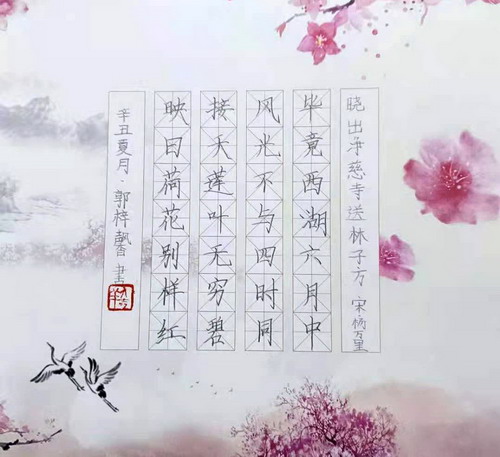 晓出净慈寺送林子方 宋杨万里
毕竟西湖六月中
风光不与四时同
接天莲叶无穷碧
映日荷花别样红
辛丑夏月·郭梓馨書